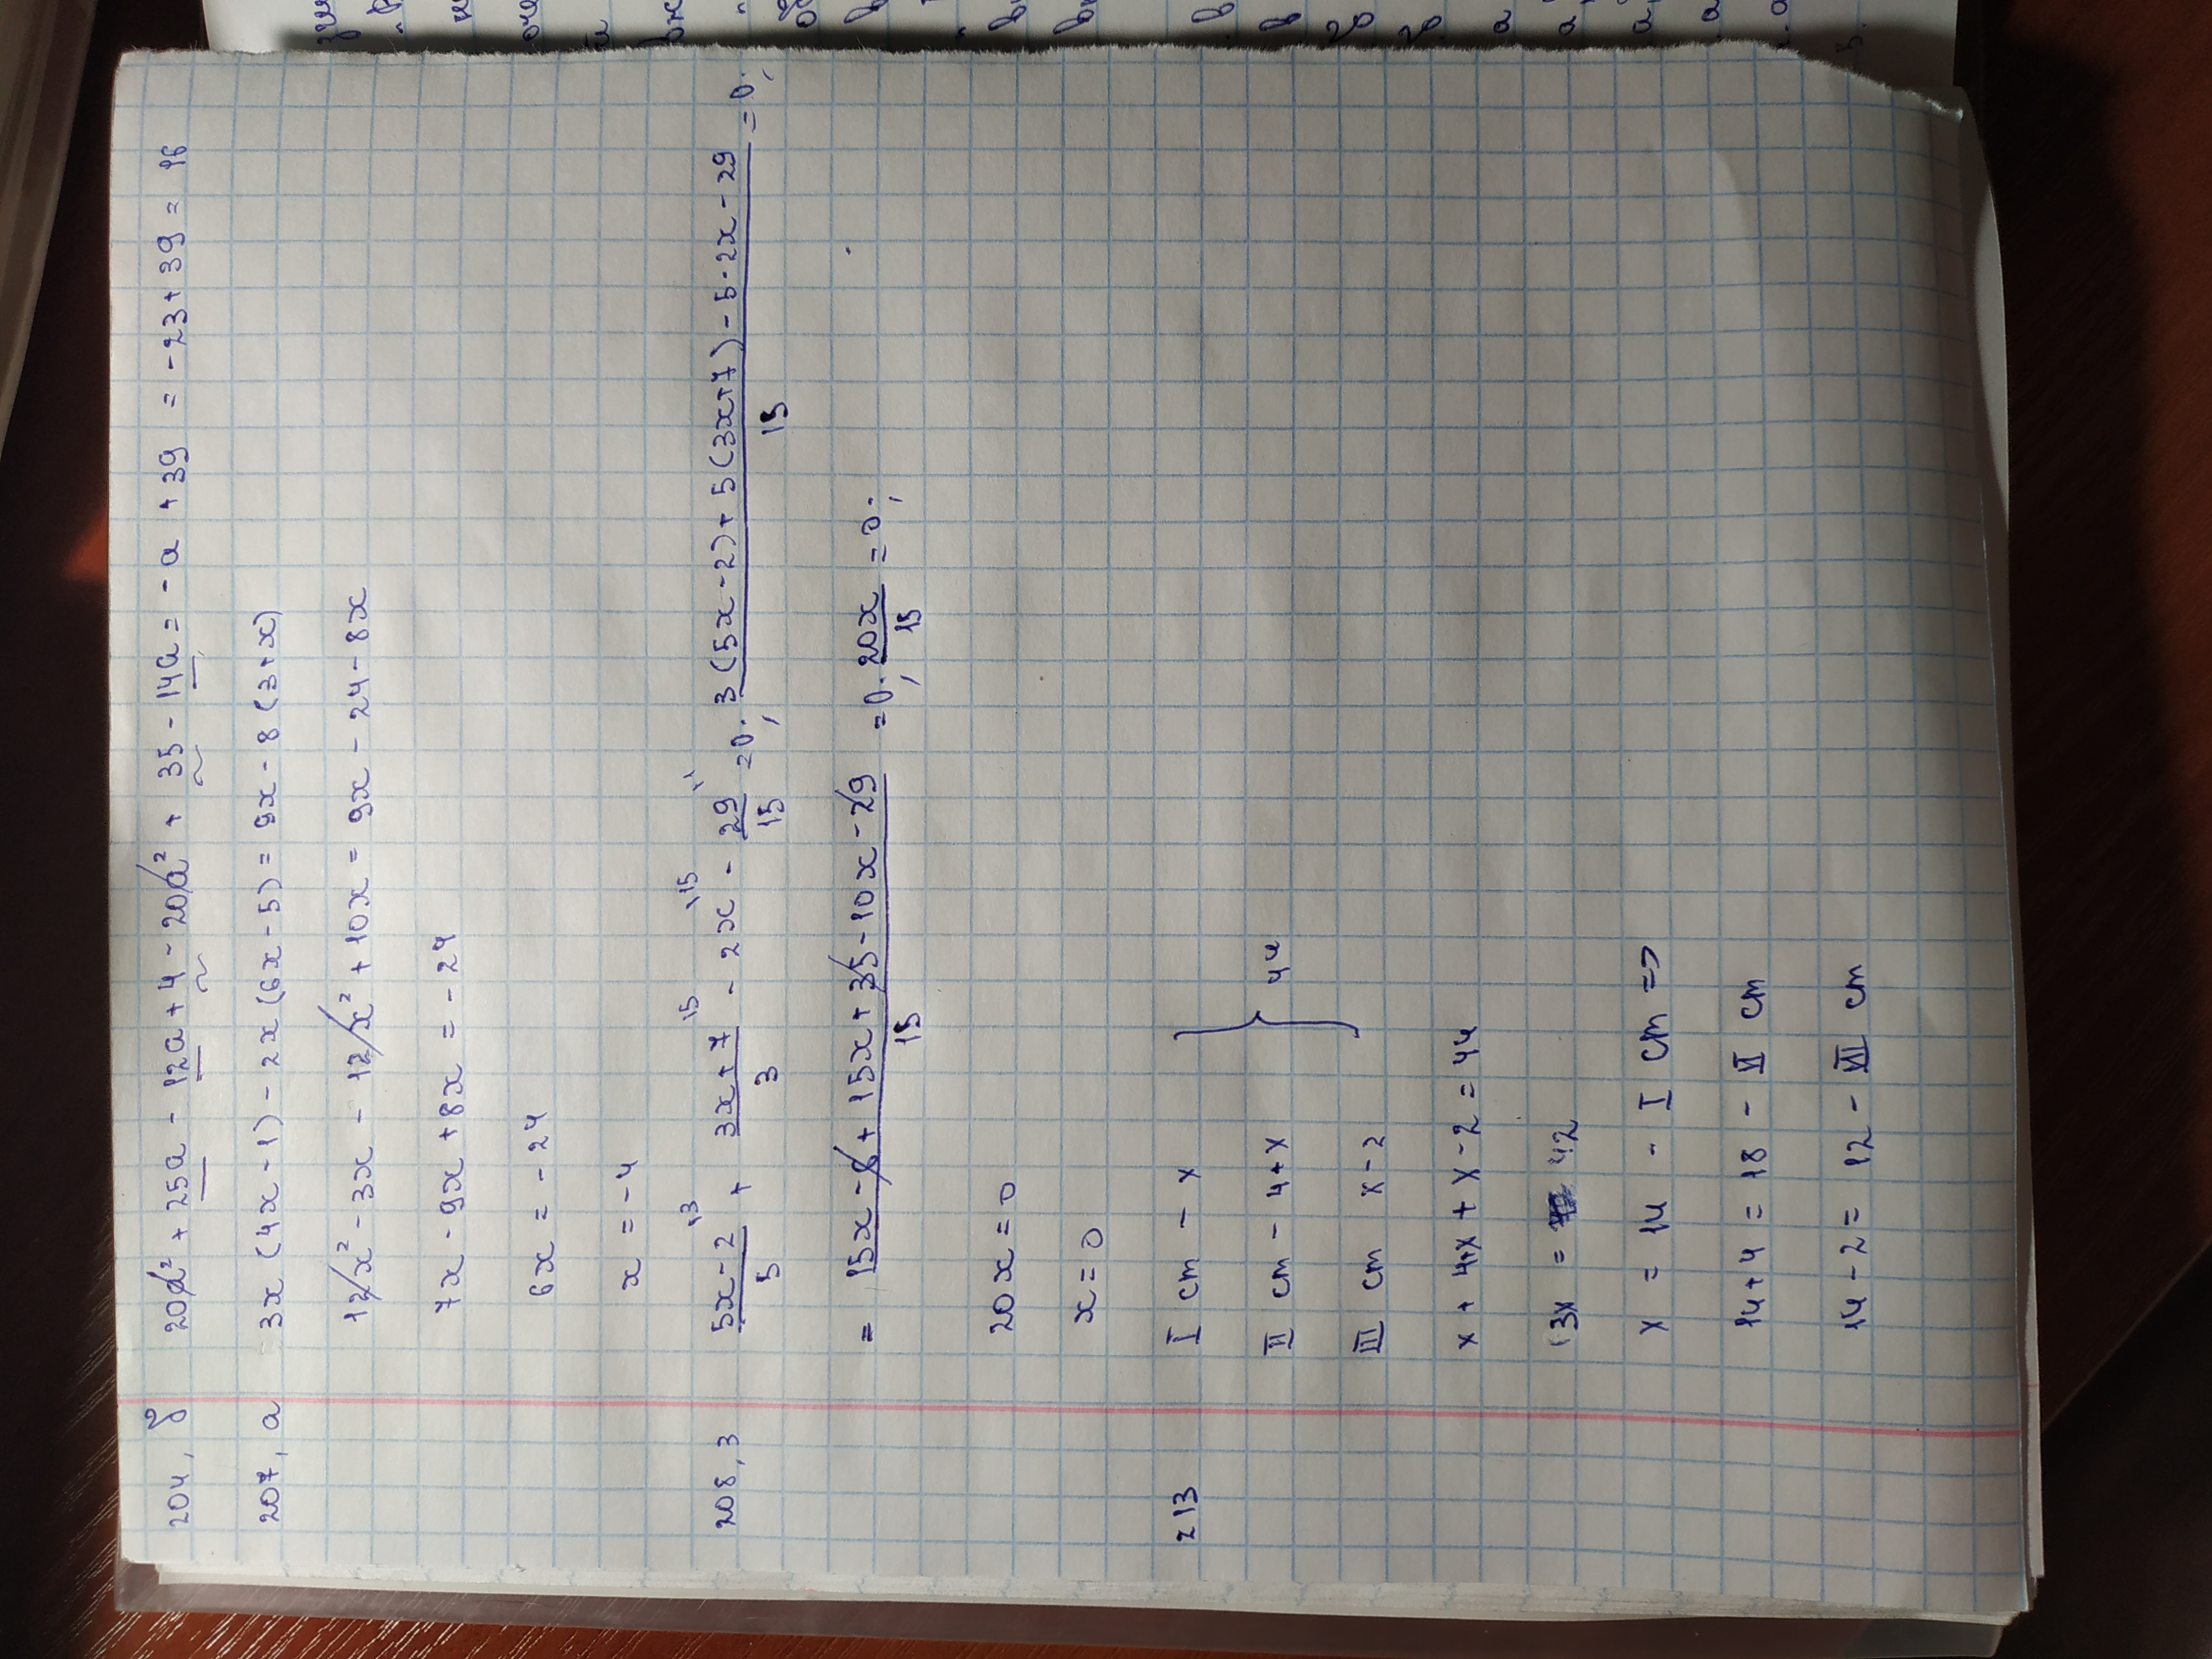 204, δ 20a² + 25a - 12a + 4 - 20a² + 35 - 14a = - a + 39 = - 23 + 39 = 16
207, a 3x (4x - 1) - 2x (6x - 5) = 9x - 8 (3+x)
12x² - 3x - 12x² + 10x = 9x - 24 - 8x
7x - 9x + 8x = - 24
6x = - 24
x = - 4
208, 3 (5x-2)/5 + (3x+7)/3 - 2x - 29/15 = 0; (3(5x-2)+5(3x+7)-5·2x-29)/15 = 0;
= (15x - 6 + 15x + 35 - 10x - 29)/15 = 0; 20x/15 = 0;
20x = 0
x = 0
213 I cm - x
II cm - 4+x } 44
III cm x-2
x + 4+x + x - 2 = 44
3x = 42
x = 14 - I cm =>
14 + 4 = 18 - II cm
14 - 2 = 12 - III cm